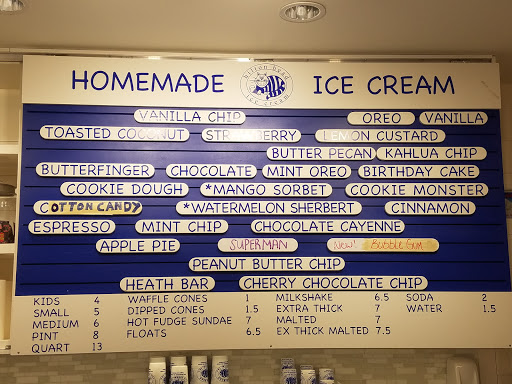 HOMEMADE hilton head ice cream ICE CREAM
VANILLA CHIP OREO VANILLA
TOASTED COCONUT STRAWBERRY LEMON CUSTARD
BUTTER PECAN KAHLUA CHIP
BUTTERFINGER CHOCOLATE MINT OREO BIRTHDAY CAKE
COOKIE DOUGH *MANGO SORBET COOKIE MONSTER
COTTON CANDY *WATERMELON SHERBERT CINNAMON
ESPRESSO MINT CHIP CHOCOLATE CAYENNE
APPLE PIE SUPERMAN New! BUBBLE GUM
PEANUT BUTTER CHIP
HEATH BAR CHERRY CHOCOLATE CHIP
KIDS 4 WAFFLE CONES 1 MILKSHAKE 6.5 SODA 2
SMALL 5 DIPPED CONES 1.5 EXTRA THICK 7 WATER 1.5
MEDIUM 6 HOT FUDGE SUNDAE 7 MALTED 7
PINT 8 FLOATS 6.5 EX THICK MALTED 7.5
QUART 13